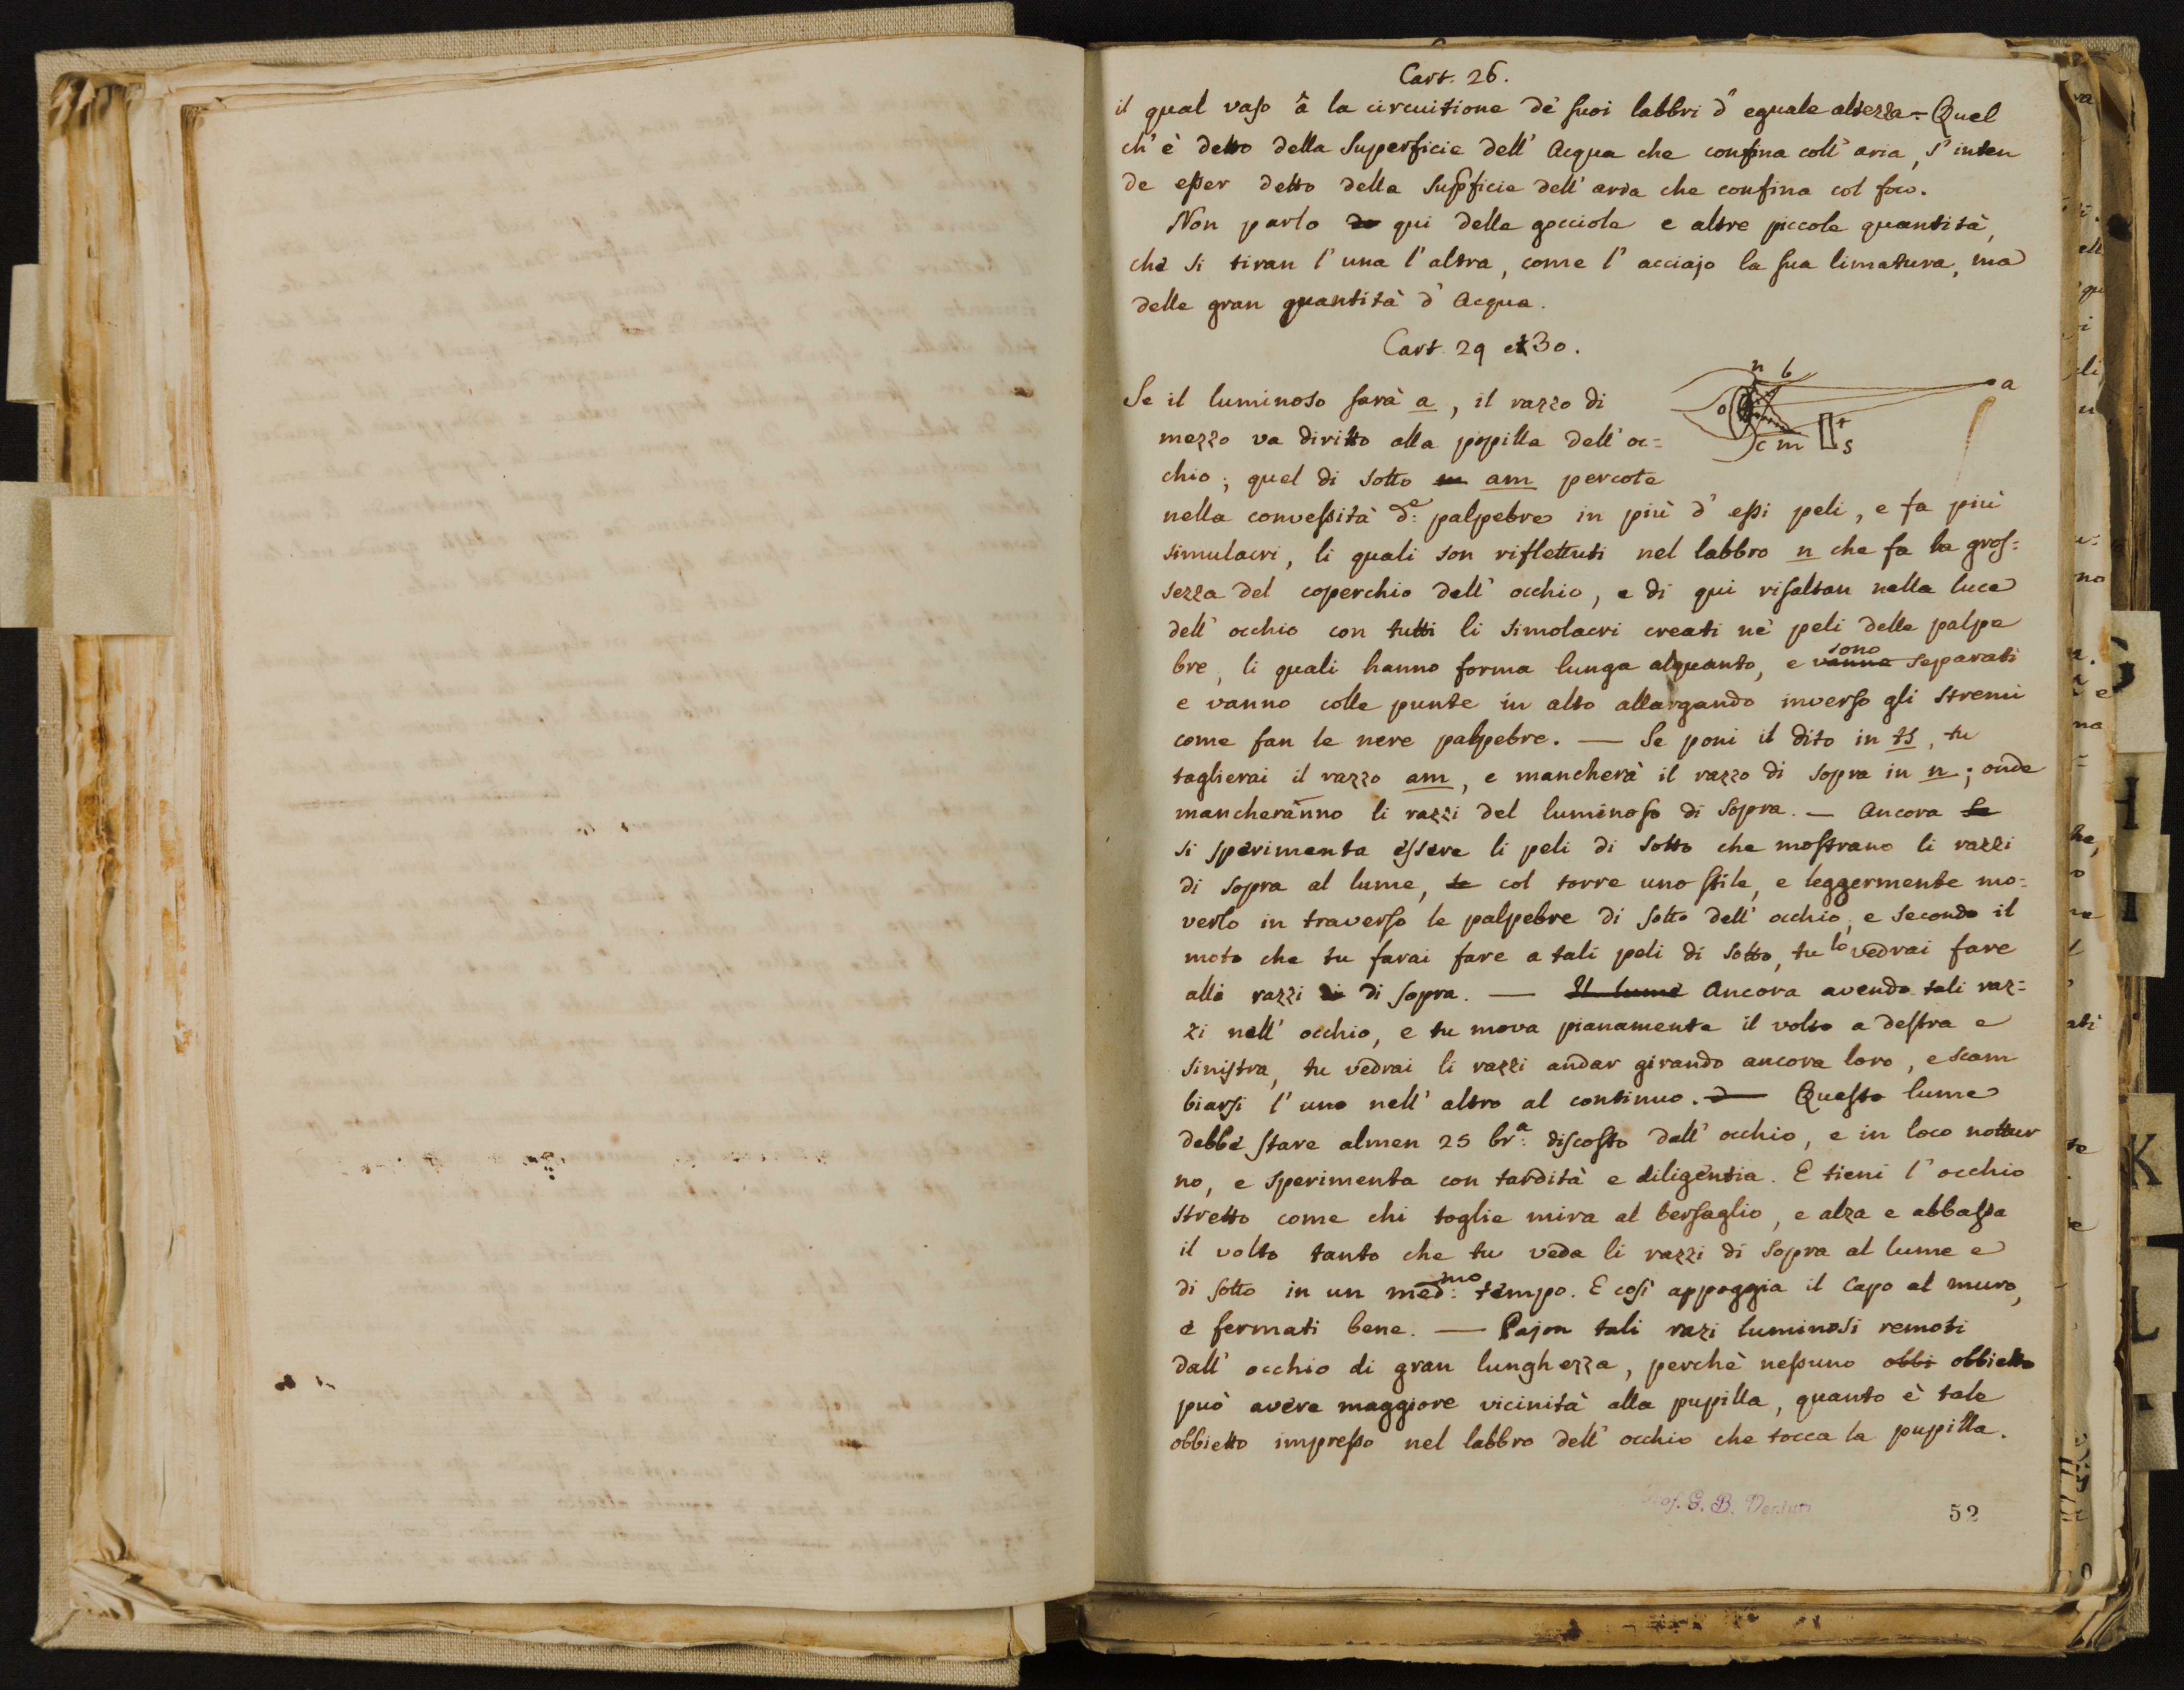 Cart. 26.
il qual vaso â la circuitione de' suoi labbri d' eguale altezza - Quel
ch' è detto della Superficie dell' Acqua che confina coll' aria, s' inten
de esser detto della Supficie dell' aria che confina col foco.
Non parlo de qui delle gocciole e altre piccole quantità,
che si tiran l' una l' altra, come l' acciajo la sua limatura, ma
delle gran quantità d' Acqua.
Cart. 29 et 30.
n b a
o
c m t s
Se il luminoso sarà a, il razzo di
mezzo va diritto alla popilla dell' oc=
chio; quel di sotto m am percote
nella convessità d.e palpebre in più d' essi peli, e fa più
simulacri, li quali son riflettuti nel labbro n che fa la gros=
sezza del coperchio dell' occhio, e di qui risaltan nella luce
dell' occhio con tutti li simolacri creati ne' peli delle palpe
bre, li quali hanno forma lunga alquanto, e vanno sono separati
e vanno colle punte in alto allargando inverso gli stremi
come fan le nere palpebre. — Se poni il dito in ts, tu
taglierai il razzo am, e mancherà il razzo di sopra in n; onde
mancheranno li razzi del luminoso di sopra. — Ancora se
si sperimenta essere li peli di sotto che mostrano li razzi
di sopra al lume, se col torre uno stile, e leggermente mo=
verlo in traverso le palpebre di sotto dell' occhio, e secondo il
moto che tu farai fare a tali peli di sotto, tu lo vedrai fare
alli razzi di di sopra. — Il lume Ancora avendo tali raz=
zi nell' occhio, e tu mova pianamente il volto a destra e
sinistra, tu vedrai li razzi andar girando ancora loro, e scam
biarsi l' uno nell' altro al continuo. — Questo lume
debbe stare almen 25 br.a discosto dall' occhio, e in loco nottur
no, e sperimenta con tardità e diligentia. E tieni l' occhio
stretto come chi toglie mira al bersaglio, e alza e abbassa
il volto tanto che tu veda li razzi di sopra al lume e
di sotto in un med.mo tempo. E così appoggia il Capo al muro,
e fermati bene. — Pajon tali razi luminosi remoti
dall' occhio di gran lunghezza, perchè nessuno obbi obbietto
può avere maggiore vicinità alla pupilla, quanto è tale
obbietto impresso nel labbro dell' occhio che tocca la pupilla.
Prof. G. B. Venturi
52
K
L